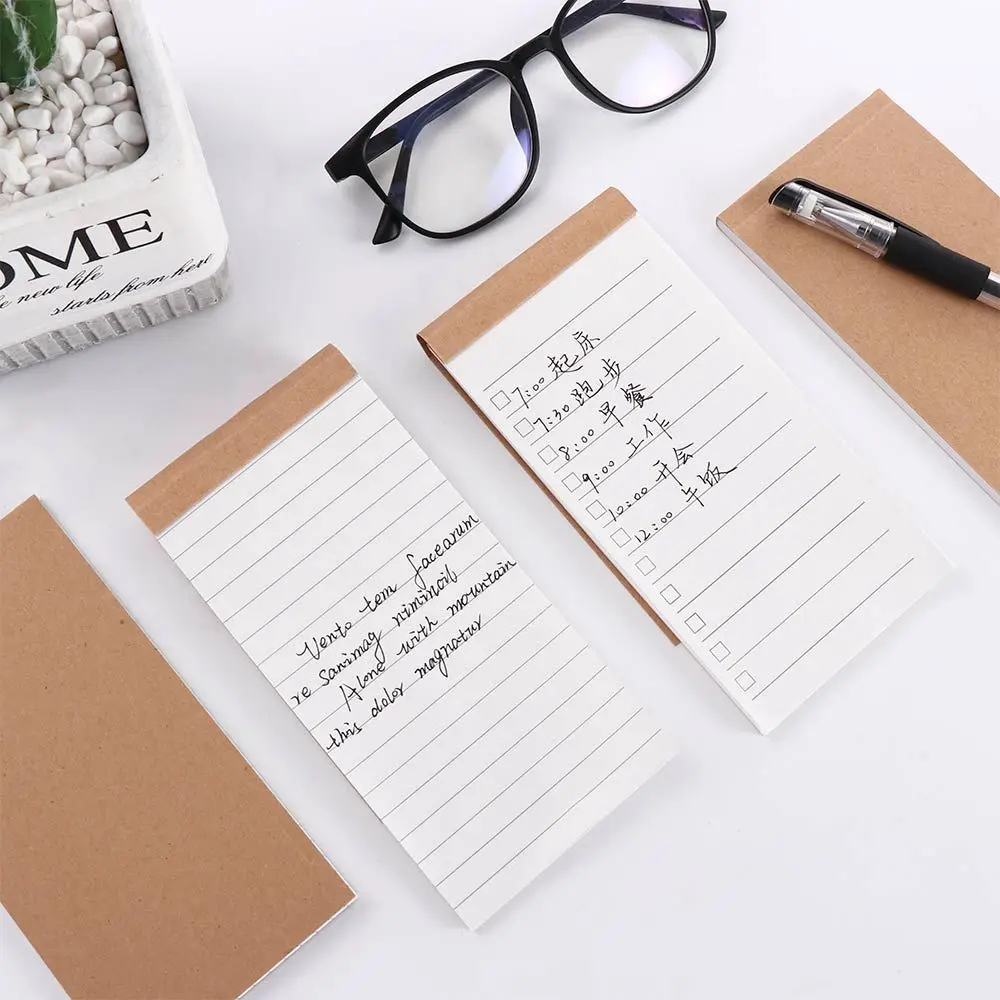 OME
e new life
starts from here
Vento tem facearum
re sanimag nimimoil
Alone with mountain
this dolor magnatur
7:00 起床
7:30 跑步
8:00 早餐
9:00 工作
10:00 开会
12:00 午饭